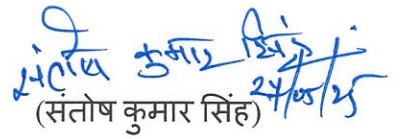 संतोष कुमार सिंह
24/05/25
(संतोष कुमार सिंह)